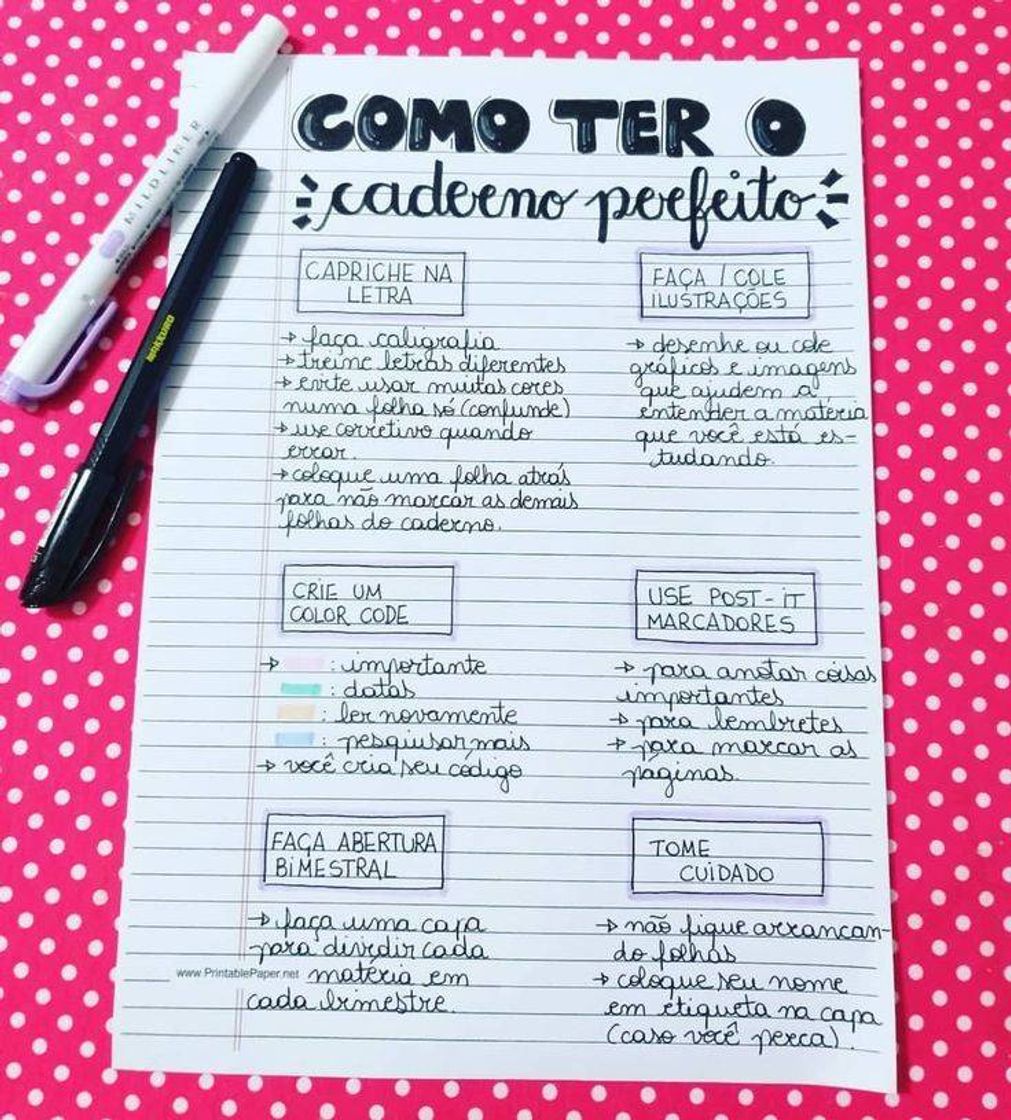 MILDLINER
MAXXURO
COMO TER O
caderno perfeito
CAPRICHE NA
LETRA
→ faça caligrafia
→ treine letras diferentes
→ evite usar muitas cores
numa folha só (confunde)
→ use corretivo quando
errar.
→ coloque uma folha atrás
para não marcar as demais
folhas do caderno.
FAÇA / COLE
ILUSTRAÇÕES
→ desenhe ou cole
gráficos e imagens
que ajudem a
entender a matéria
que você está es-
tudando.
CRIE UM
COLOR CODE
→ : importante
: datas
: ler novamente
: pesquisar mais
→ você cria seu código
USE POST-IT
MARCADORES
→ para anotar coisas
importantes
→ para lembretes
→ para marcar as
páginas.
FAÇA ABERTURA
BIMESTRAL
→ faça uma capa
para dividir cada
matéria em
cada bimestre.
www.PrintablePaper.net
TOME
CUIDADO
→ não fique arrancan-
do folhas
→ coloque seu nome
em etiqueta na capa
(caso você perca).